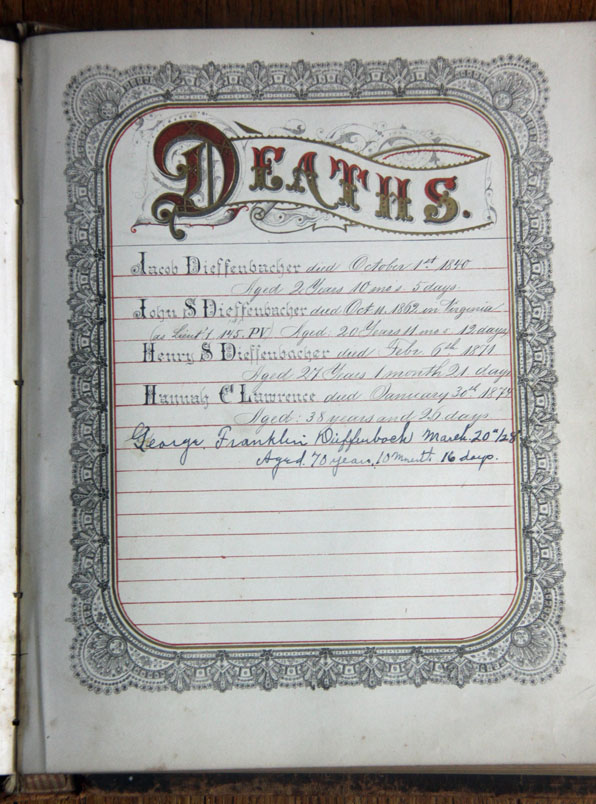 DEATHS.
Jacob Dieffenbacher died October 1st 1840
Aged 2 Years 10 mo's 5 days
John S Dieffenbacher died Oct 11. 1862 in Virginia
(as Lieu't 145. PV) Aged: 20 Years 11 mo's 12 days
Henry S Dieffenbacher died Febr 6th 1871
Aged 27 Years 1 month 21 days
Hannah C Lawrence died January 30th
Aged: 38 years and 26 days
George Franklin Dieffenbach March 20th/28
Aged. 70 years, 10 month 16 days.